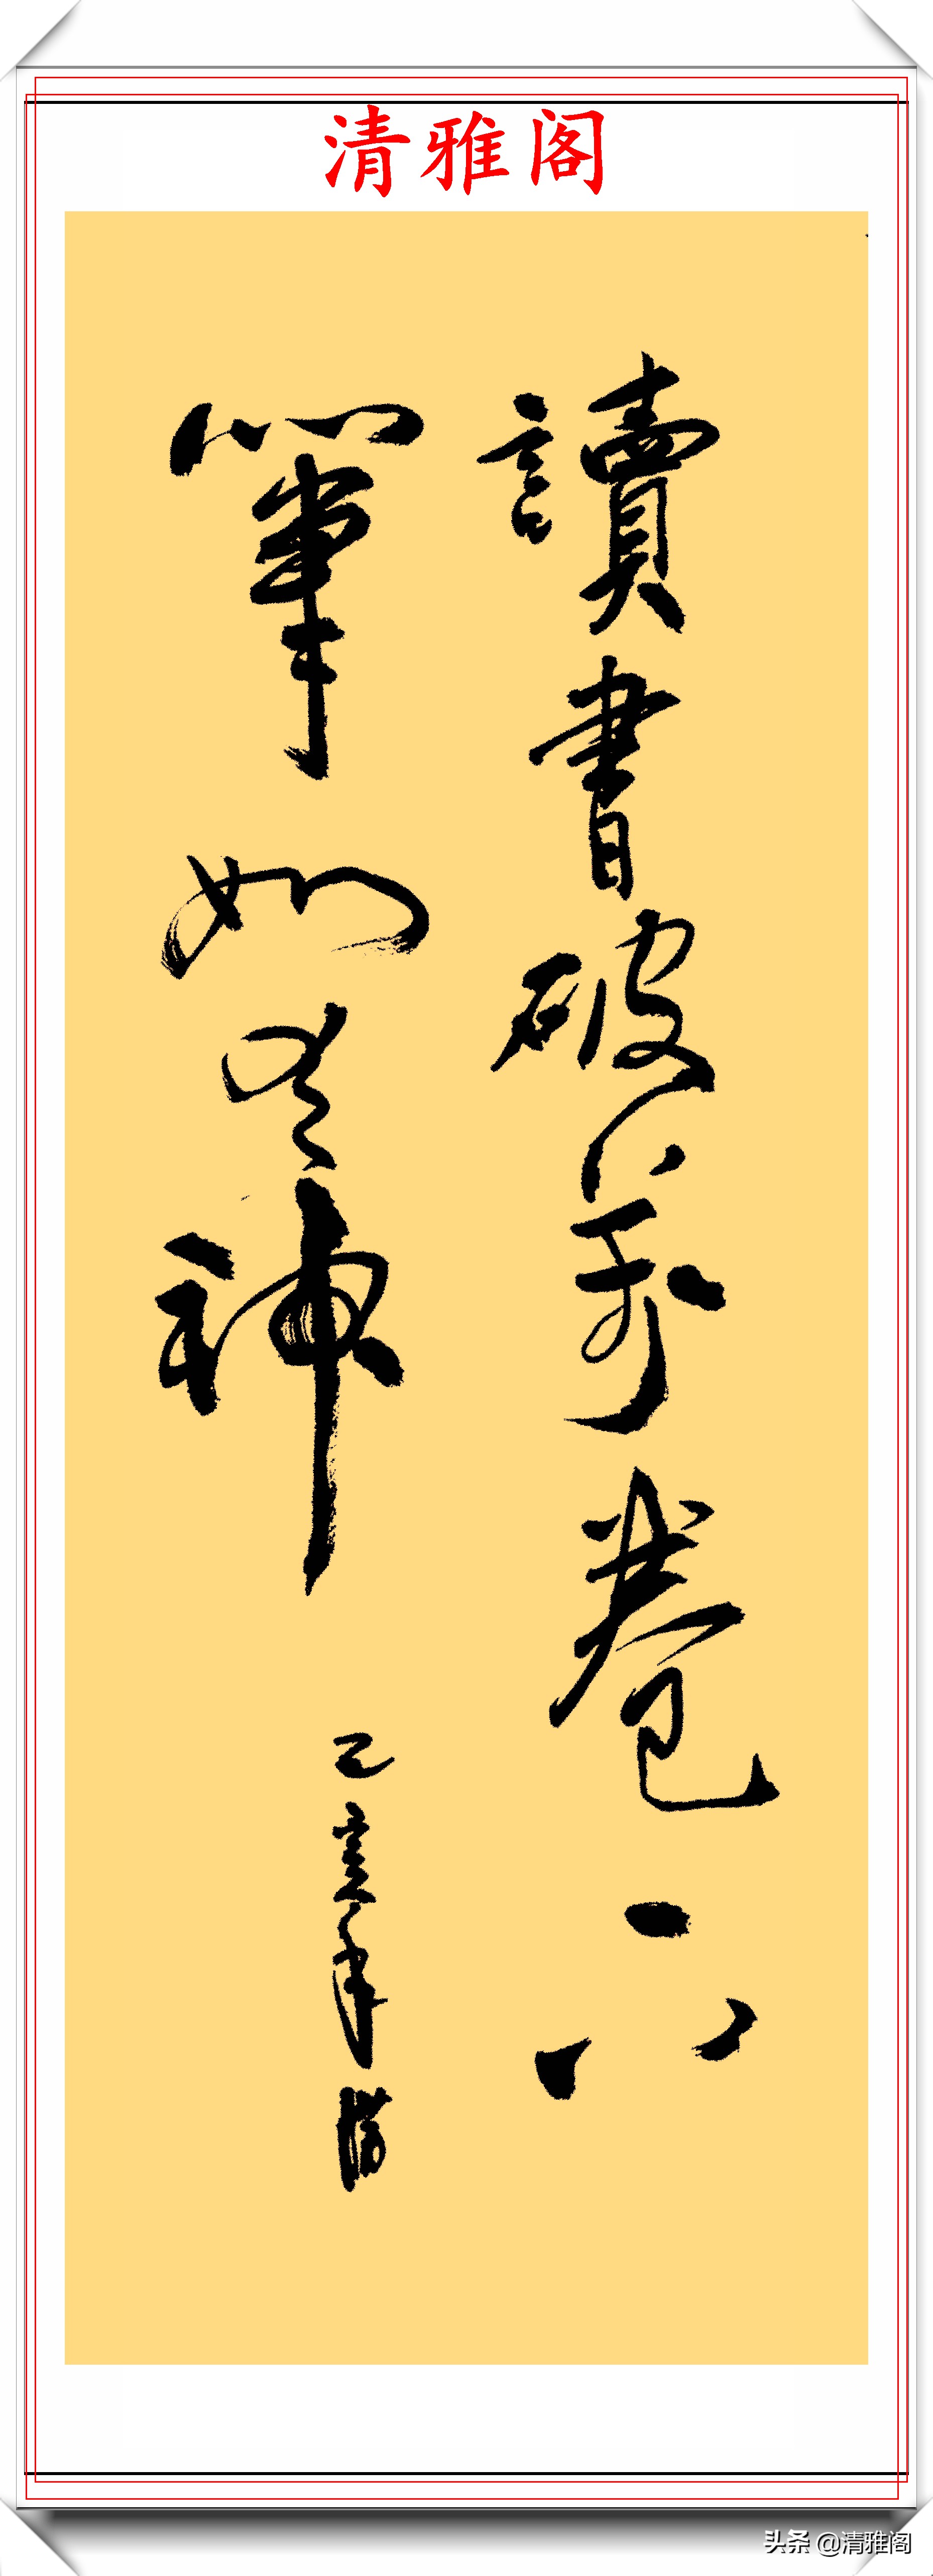 清雅阁
讀書破萬卷下
筆如有神
乙亥年
头条 @清雅阁